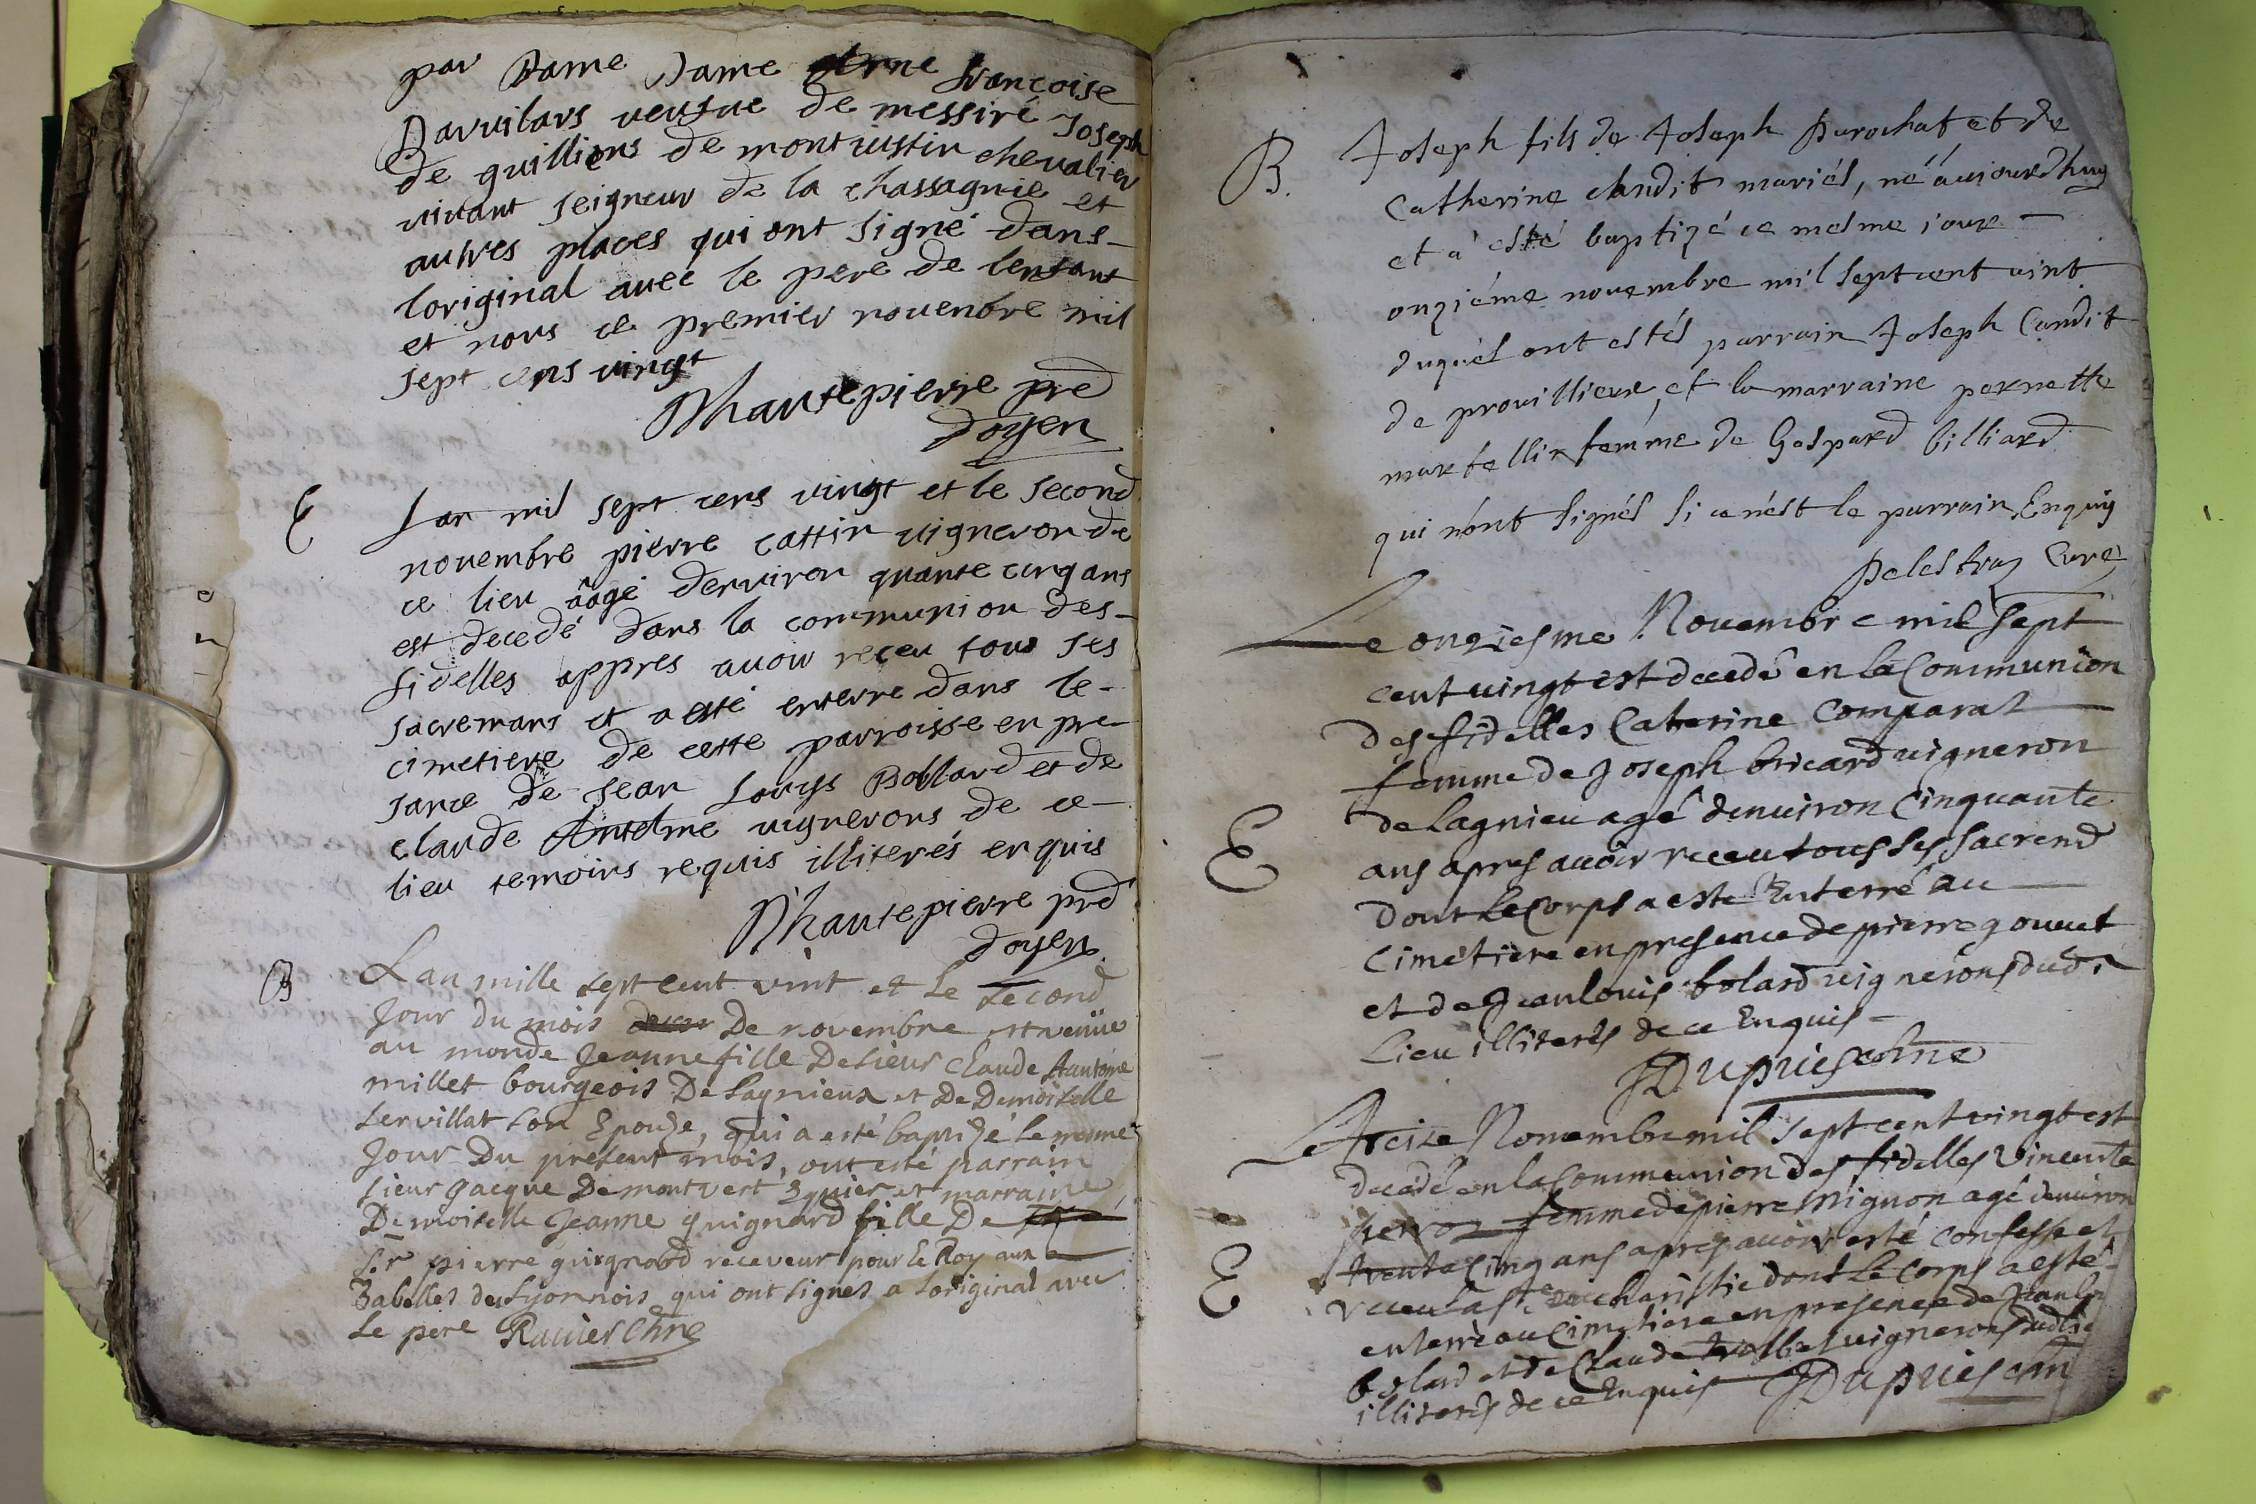 par Dame Dame Anne francoise
Darvilars veufue de messire Joseph
de guilliens de montiustin chevalier
vivant seigneur de la chassagnie et
autres places qui ont signé dans
loriginal avec le pere de lenfant
et nous ce premier novenbre mil
sept cens vingt
Dhautepierre pre
doyen
E
Lan mil sept cens vingt et le second
novembre pierre cattin vigneron de
ce lieu ââgé denviron quante cinq ans
est decedé dans la communion des
fidelles appres avoir receu tous ses
sacremans et a esté enterre dans le
cimetiere de cette parroisse en pre
sance de Jean Louys Bollard et de
claude Antelme vignerons de ce
lieu temoins requis illiterés enquis
Dhautepierre pre
doyen
B
Lan mille sept cent vint et Le Second
Jour du mois De novembre est venüe
au monde Jeanne fille De sieur Claude Antoine
millet bourgeois De Lagnieux et De Demoiselle
Servillat son Epouze, qui a esté baptizé le mesme
Jour Du présent mois, ont esté parrain
sieur Jacque Demontvert Equier et marraine
Demoiselle Jeanne guignard fille De
Sr pierre guignard receveur pour Le Roy aux
Gabelles du Lyonnois qui ont signes a Loriginal avec
Le pere Ravier Chne
B.
Joseph fils de Joseph Durochat et de
Catherine Candit mariés, né áujourdhuy
et a esté baptizé ce mesme jour
onziéme novembre mil sept cent vint
duquel ont estés parrain Joseph Candit
de provillieux, et la marraine pernette
martellin femme de Gaspard billiard
qui n'ont signés si ce nést le parrain Enquis
Delestraz Curé
Le onziesme Novembre mil sept
cent vingt est decedé en la Communion
des fidelles Caterine Comparat
femme de Joseph bricard vigneron
E
de Lagnieu agé denviron Cinquante
ans apres avoir receu tous ses sacrend
dont Le Corps a esté Enterré au
Cimetiere en presence de pierre gouvet
et de Jean louis bolard vignerons dud
Lieu illiterés de ce Enquis
JDupuis chne
Le treize Novembre mil sept cent vingt est
decedé en la Communion des fidelles Vincente
perron femme de pierre Mignon agé denviron
E
trente Cinq ans apres avoir esté confessé et
receu la Ste eucharistie dont Le Corps a esté
enterré au Cimetiere en presence de Jean lo
bolard et de Claude vignerons dud lie
illiterés de ce Enquis JDupuis chn